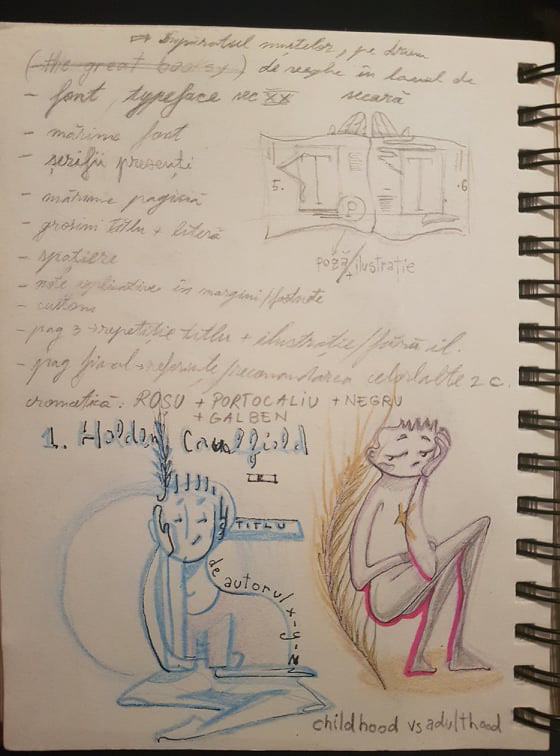 ⇒ Împăratul muștelor, pe drum
(the great gatsby) de veghe în lanul de
- font, typeface sec XX secară
- mărime font
- serifii prezenți
- mărime pagină
- grosimi titlu + literă
- spațiere
- note explicative în margini/footnote
- custom
- pag 3 → repetiție titlu + ilustrație/fără il.
- pag final → referințe/recomandarea celorlalte 2 c.
5. T T .6
P
poză/ilustrație
+
cromatică: ROȘU + PORTOCALIU + NEGRU
+ GALBEN
1. Holden Caulfield
TITLU
de autorul x-y-z
childhood vs adulthood